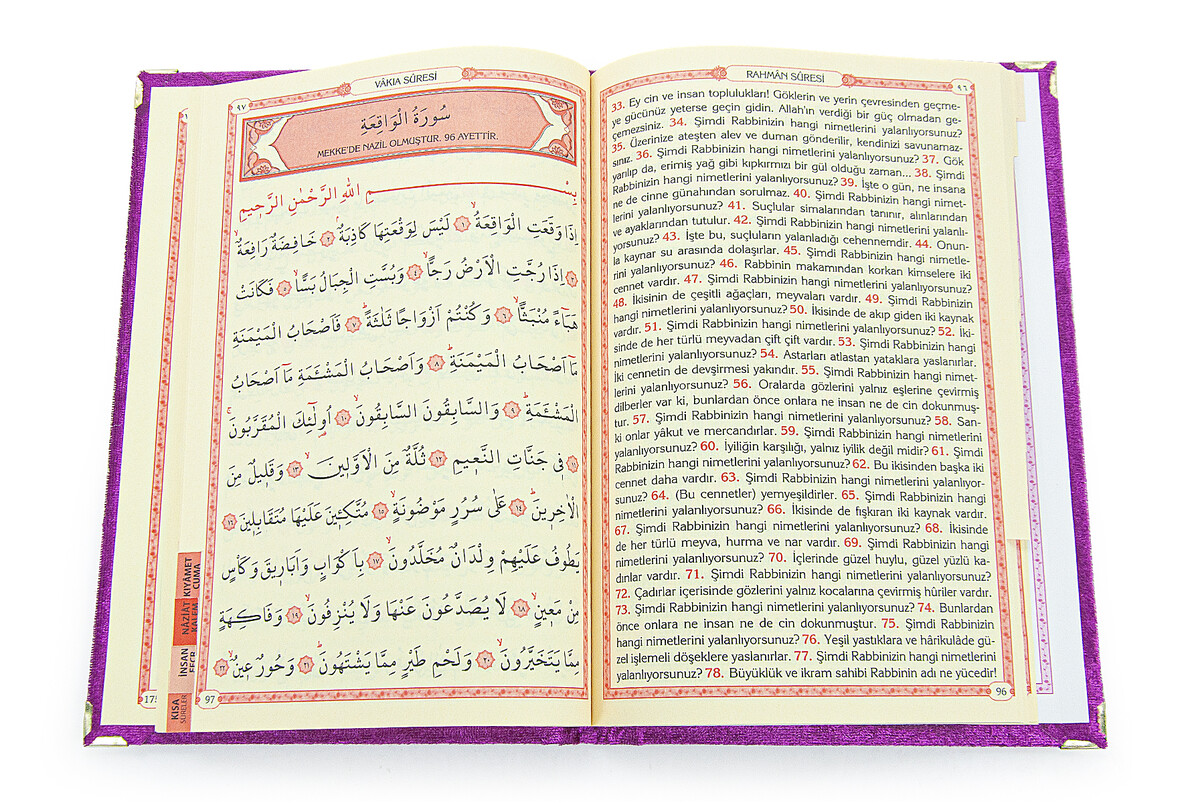 RAHMÂN SÛRESİ
٩٦
33. Ey cin ve insan toplulukları! Göklerin ve yerin çevresinden geçme-
ye gücünüz yeterse geçin gidin. Allah'ın verdiği bir güç olmadan ge-
çemezsiniz. 34. Şimdi Rabbinizin hangi nimetlerini yalanlıyorsunuz?
35. Üzerinize ateşten alev ve duman gönderilir, kendinizi savunamaz-
sınız. 36. Şimdi Rabbinizin hangi nimetlerini yalanlıyorsunuz? 37. Gök
yarılıp da, erimiş yağ gibi kıpkırmızı bir gül olduğu zaman... 38. Şimdi
Rabbinizin hangi nimetlerini yalanlıyorsunuz? 39. İşte o gün, ne insana
ne de cinne günahından sorulmaz. 40. Şimdi Rabbinizin hangi nimet-
lerini yalanlıyorsunuz? 41. Suçlular simalarından tanınır, alınlarından
ve ayaklarından tutulur. 42. Şimdi Rabbinizin hangi nimetlerini yalanlı-
yorsunuz? 43. İşte bu, suçluların yalanladığı cehennemdir. 44. Onun-
la kaynar su arasında dolaşırlar. 45. Şimdi Rabbinizin hangi nimetle-
rini yalanlıyorsunuz? 46. Rabbinin makamından korkan kimselere iki
cennet vardır. 47. Şimdi Rabbinizin hangi nimetlerini yalanlıyorsunuz?
48. İkisinin de çeşitli ağaçları, meyvaları vardır. 49. Şimdi Rabbinizin
hangi nimetlerini yalanlıyorsunuz? 50. İkisinde de akıp giden iki kaynak
vardır. 51. Şimdi Rabbinizin hangi nimetlerini yalanlıyorsunuz? 52. İki-
sinde de her türlü meyvadan çift çift vardır. 53. Şimdi Rabbinizin hangi
nimetlerini yalanlıyorsunuz? 54. Astarları atlastan yataklara yaslanırlar.
İki cennetin de devşirmesi yakındır. 55. Şimdi Rabbinizin hangi nimet-
lerini yalanlıyorsunuz? 56. Oralarda gözlerini yalnız eşlerine çevirmiş
dilberler var ki, bunlardan önce onlara ne insan ne de cin dokunmuş-
tur. 57. Şimdi Rabbinizin hangi nimetlerini yalanlıyorsunuz? 58. San-
ki onlar yâkut ve mercandırlar. 59. Şimdi Rabbinizin hangi nimetlerini
yalanlıyorsunuz? 60. İyiliğin karşılığı, yalnız iyilik değil midir? 61. Şimdi
Rabbinizin hangi nimetlerini yalanlıyorsunuz? 62. Bu ikisinden başka iki
cennet daha vardır. 63. Şimdi Rabbinizin hangi nimetlerini yalanlıyor-
sunuz? 64. (Bu cennetler) yemyeşildirler. 65. Şimdi Rabbinizin hangi
nimetlerini yalanlıyorsunuz? 66. İkisinde de fışkıran iki kaynak vardır.
67. Şimdi Rabbinizin hangi nimetlerini yalanlıyorsunuz? 68. İkisinde
de her türlü meyva, hurma ve nar vardır. 69. Şimdi Rabbinizin hangi
nimetlerini yalanlıyorsunuz? 70. İçlerinde güzel huylu, güzel yüzlü ka-
dınlar vardır. 71. Şimdi Rabbinizin hangi nimetlerini yalanlıyorsunuz?
72. Çadırlar içerisinde gözlerini yalnız kocalarına çevirmiş hûriler vardır.
73. Şimdi Rabbinizin hangi nimetlerini yalanlıyorsunuz? 74. Bunlardan
önce onlara ne insan ne de cin dokunmuştur. 75. Şimdi Rabbinizin
hangi nimetlerini yalanlıyorsunuz? 76. Yeşil yastıklara ve hârikulâde gü-
zel işlemeli döşeklere yaslanırlar. 77. Şimdi Rabbinizin hangi nimetlerini
yalanlıyorsunuz? 78. Büyüklük ve ikram sahibi Rabbinin adı ne yücedir!
96
٩٧
VÂKIA SÛRESİ
سُورَةُ الْوَاقِعَةِ
MEKKE'DE NAZİL OLMUŞTUR. 96 AYETTİR.
بِسْمِ اللهِ الرَّحْمٰنِ الرَّح۪يمِ
اِذَا وَقَعَتِ الْوَاقِعَةُۙ ﴿١﴾ لَيْسَ لِوَقْعَتِهَا كَاذِبَةٌۢ ﴿٢﴾ خَافِضَةٌ رَافِعَةٌۙ
﴿٣﴾ اِذَا رُجَّتِ الْاَرْضُ رَجًّاۙ ﴿٤﴾ وَبُسَّتِ الْجِبَالُ بَسًّاۙ ﴿٥﴾ فَكَانَتْ
هَبَٓاءً مُنْبَثًّاۙ ﴿٦﴾ وَكُنْتُمْ اَزْوَاجًا ثَلٰثَةًؕ ﴿٧﴾ فَاَصْحَابُ الْمَيْمَنَةِ
مَٓا اَصْحَابُ الْمَيْمَنَةِؕ ﴿٨﴾ وَاَصْحَابُ الْمَشْـَٔمَةِ مَٓا اَصْحَابُ
الْمَشْـَٔمَةِؕ ﴿٩﴾ وَالسَّابِقُونَ السَّابِقُونَۙ ﴿١٠﴾ اُو۬لٰٓئِكَ الْمُقَرَّبُونَۚ
﴿١١﴾ ف۪ي جَنَّاتِ النَّع۪يمِ ﴿١٢﴾ ثُلَّةٌ مِنَ الْاَوَّل۪ينَۙ ﴿١٣﴾ وَقَل۪يلٌ مِنَ
الْاٰخِر۪ينَؕ ﴿١٤﴾ عَلٰى سُرُرٍ مَوْضُونَةٍۙ ﴿١٥﴾ مُتَّكِـ۪ٔينَ عَلَيْهَا مُتَقَابِل۪ينَ ﴿١٦﴾
يَطُوفُ عَلَيْهِمْ وِلْدَانٌ مُخَلَّدُونَۙ ﴿١٧﴾ بِاَكْوَابٍ وَاَبَار۪يقَ وَكَأْسٍ
مِنْ مَع۪ينٍۙ ﴿١٨﴾ لَا يُصَدَّعُونَ عَنْهَا وَلَا يُنْزِفُونَۙ ﴿١٩﴾ وَفَاكِهَةٍ
مِمَّا يَتَخَيَّرُونَۙ ﴿٢٠﴾ وَلَحْمِ طَيْرٍ مِمَّا يَشْتَهُونَؕ ﴿٢١﴾ وَحُورٌ ع۪ينٌۙ ﴿٢٢﴾
97
KIYÂMET
CUMA
NÂZİÂT
KALEM
İNSAN
FECR
KISA
SÛRELER
175